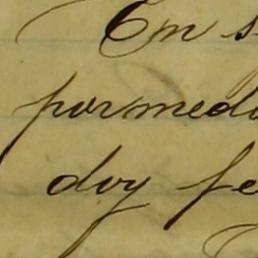 Em s
pormedo
doy fe